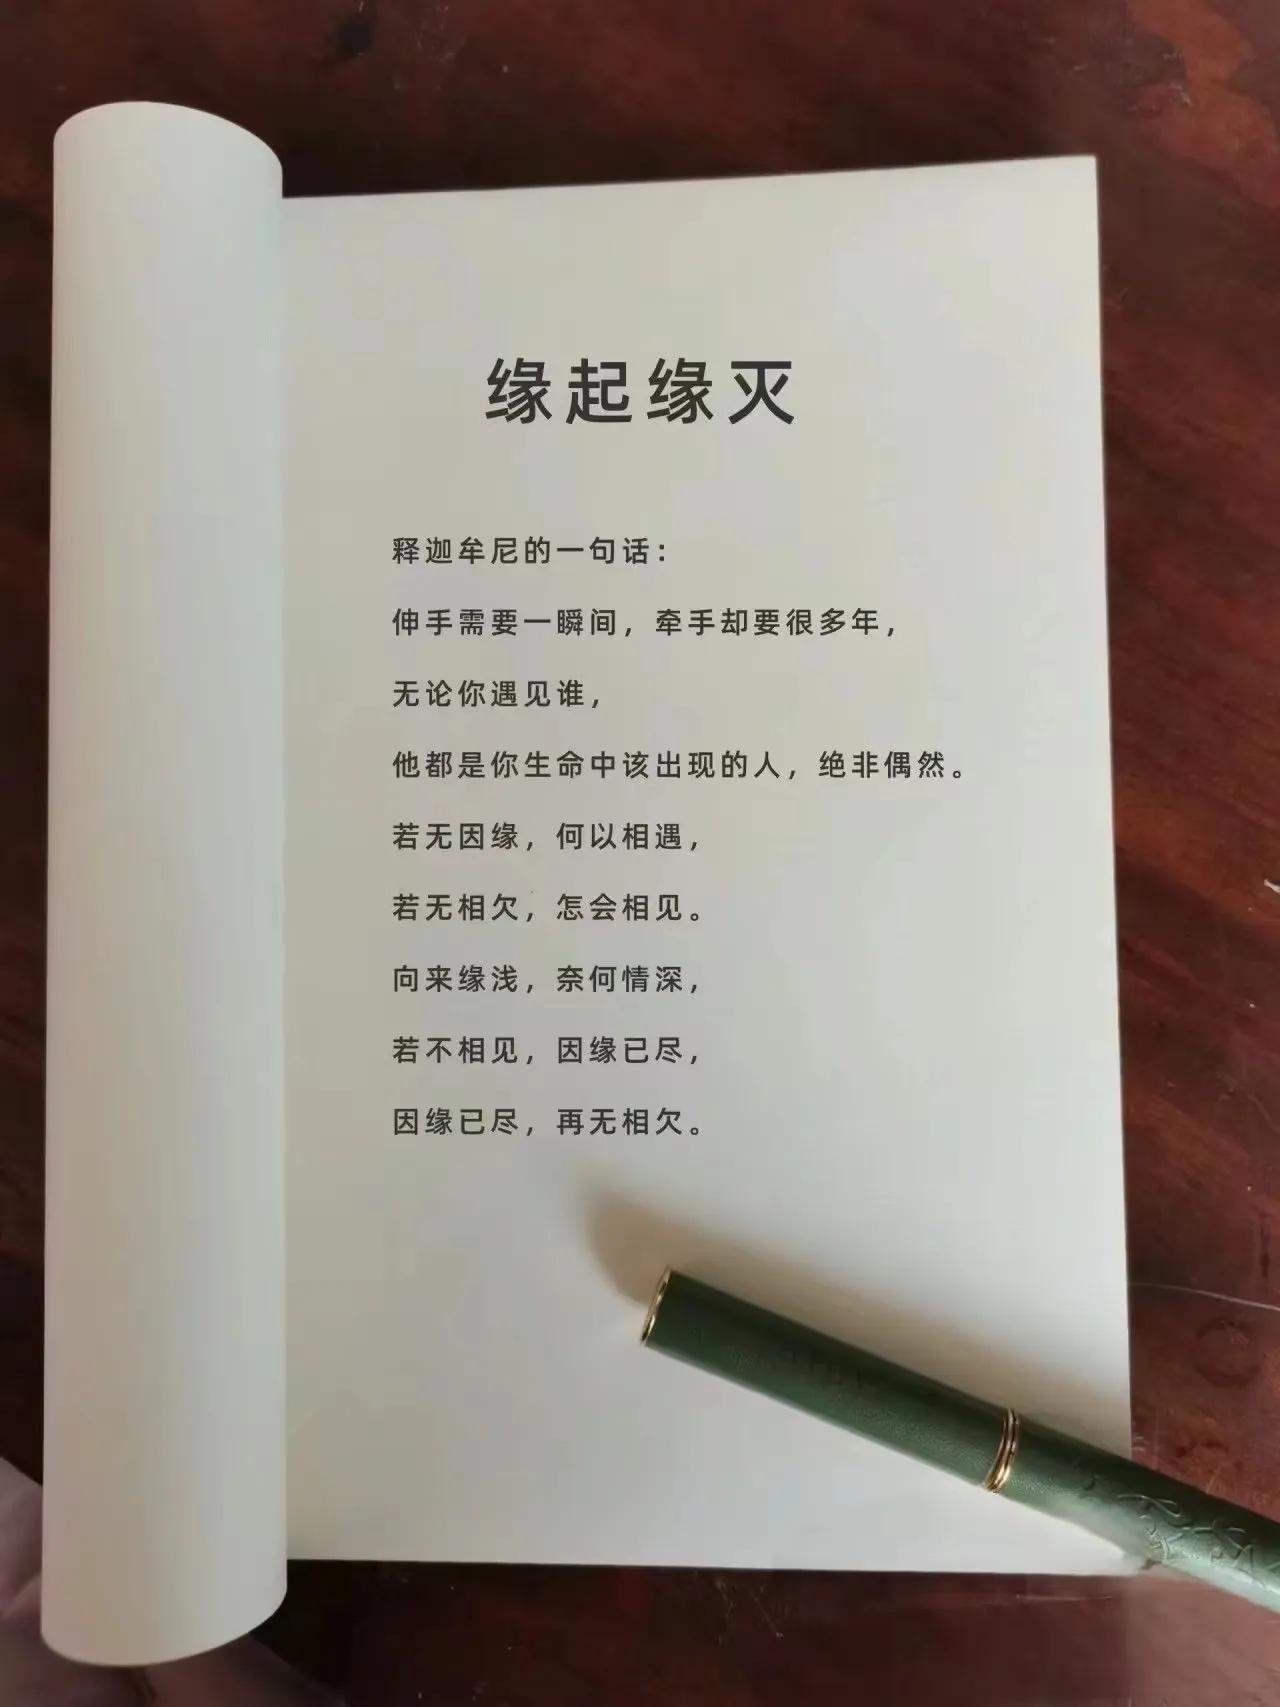 缘起缘灭
释迦牟尼的一句话：
伸手需要一瞬间，牵手却要很多年，
无论你遇见谁，
他都是你生命中该出现的人，绝非偶然。
若无因缘，何以相遇，
若无相欠，怎会相见。
向来缘浅，奈何情深，
若不相见，因缘已尽，
因缘已尽，再无相欠。